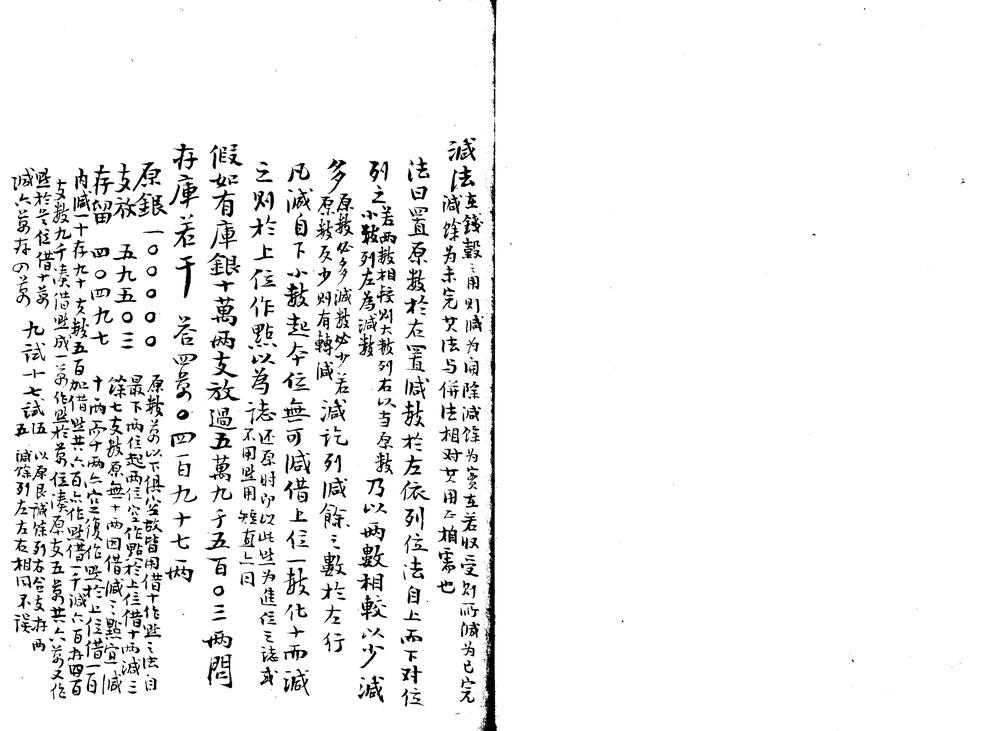 減法在錢穀之用則減為開除減餘為實在若收受則所減為已完
減餘為未完其法与併法相対其用亦相需也
法曰置原数於右置減数於左依列位法自上而下对位
列之若两数相較則大数列右以当原数
小数列左為減数
乃以两數相較以少減
多原数必多減数必少若
原数反少則有轉減
減訖列減餘之數於左行
凡減自下小数起夲位無可減借上位一数化十而減
之則於上位作點以為誌还原时即以此點为進位之誌或
不用點用短直亦同
假如有庫銀十萬两支放過五萬九千五百〇三两問
存庫若干 答四萬〇四百九十七两
原銀一〇〇〇〇〇
支放 五九五〇三
存留 四〇四九七
原数萬以下俱空故皆用借十作點之法自
最下两位起两位空作點於上位借十两減三
餘七支数原無十两因借減之點宜減
十两而十两亦空復作點於上位借一百
内減一十存九十支数五百加借點共六百亦作點借一千減六百存四百
支数九千凑借點成一萬作點於萬位凑原支五萬共六萬又作
點於先位借十萬
減六萬存四萬
九試一十七試五 以原艮試餘列右合支存两
減餘列左左右相同不误